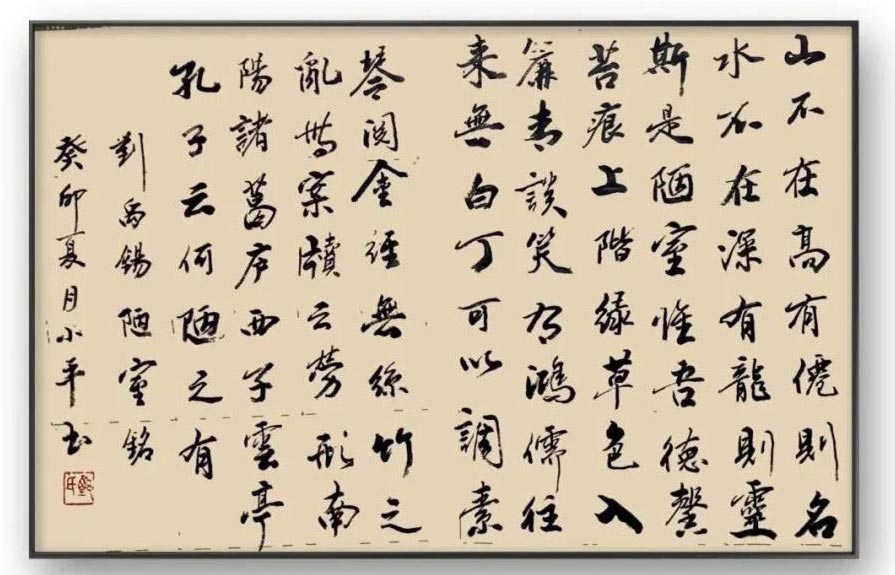 山不在高有僊則名
水不在深有龍則靈
斯是陋室惟吾德馨
苔痕上階緑草色入
簾青談笑有鴻儒往
来無白丁可以調素
琴閲金經無絲竹之
亂無案牘之勞形南
陽諸葛庐西子雲亭
孔子云何陋之有
劉禹錫陋室銘
癸卯夏月小平书